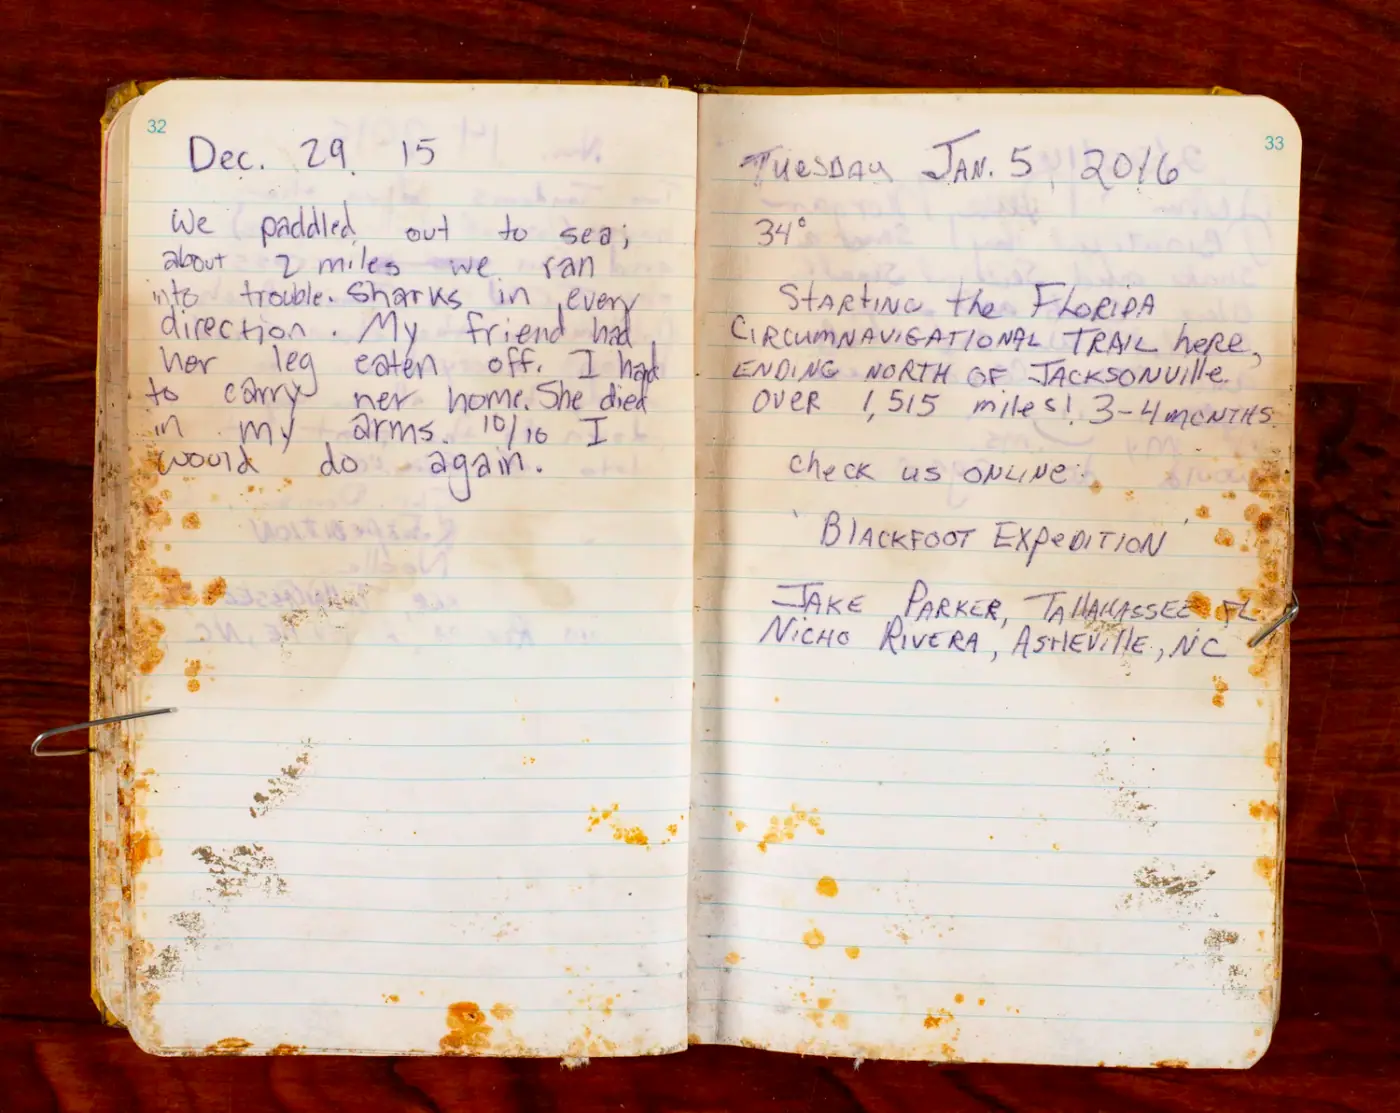 32
Dec. 29. 15
We paddled out to sea;
about 2 miles we ran
into trouble. Sharks in every
direction. My friend had
her leg eaten off. I had
to carry her home. She died
in my arms. 10/10 I
would do again.
33
Tuesday Jan. 5, 2016
34°
Starting the Florida
Circumnavigational Trail here,
ending north of Jacksonville.
over 1,515 miles! 3-4 months.
check us online:
'Blackfoot Expedition'
Jake Parker, Tallahassee FL
Nicho Rivera, Asheville, NC